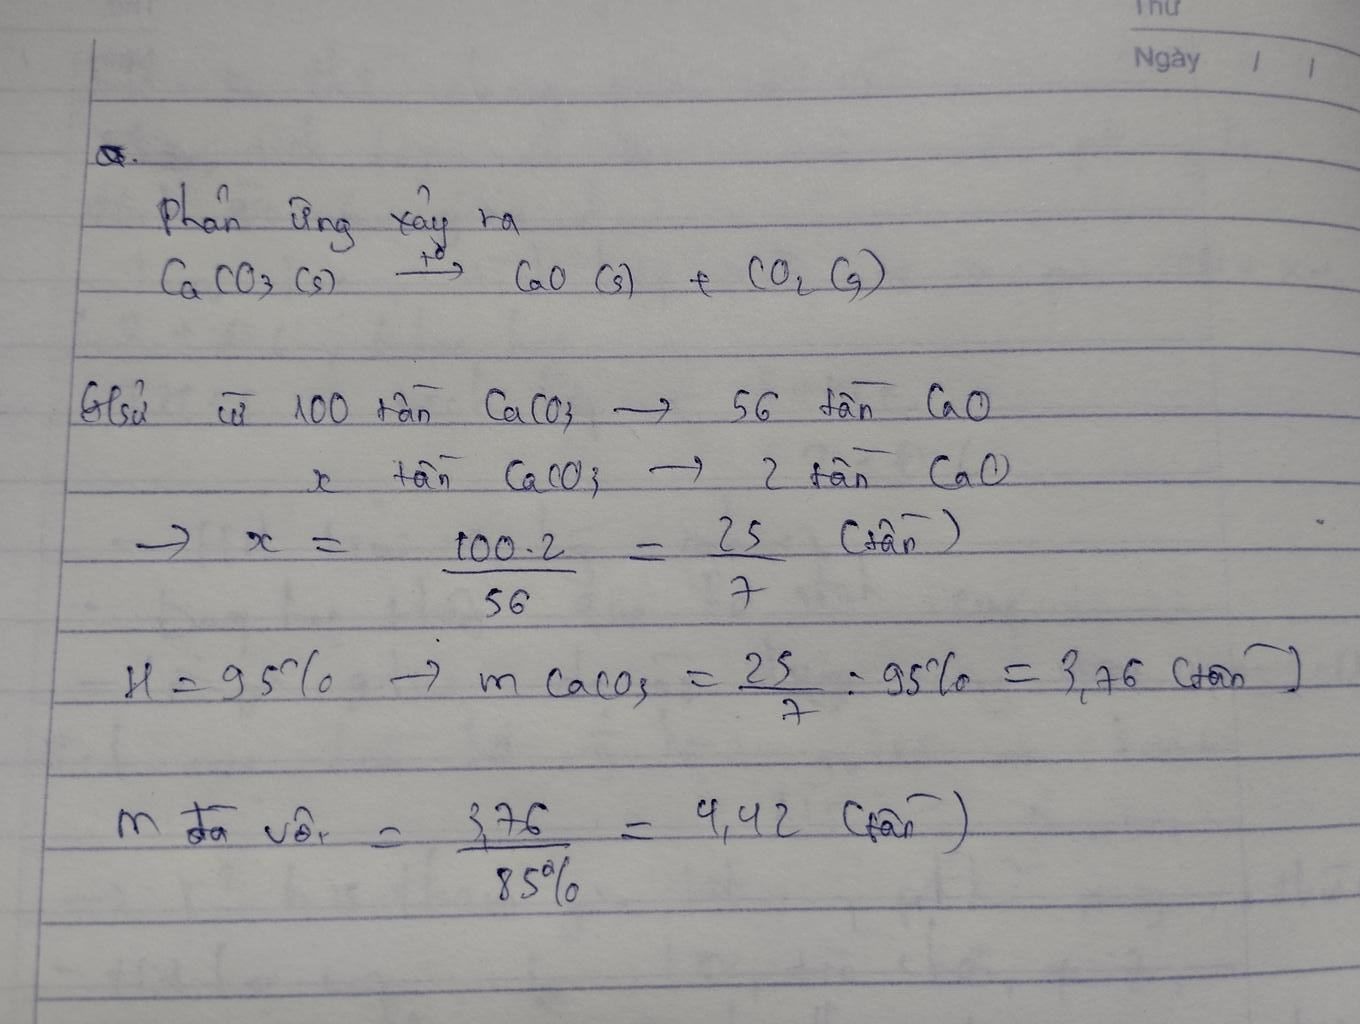 Thứ
Ngày / /
a.
Phản ứng xảy ra
CaCO3 (s) →(t°) CaO (s) + CO2 (g)
Gsử cứ 100 tấn CaCO3 → 56 tấn CaO
x tấn CaCO3 → 2 tấn CaO
→ x = 100.2/56 = 25/7 (tấn)
H = 95% → m CaCO3 = 25/7 : 95% = 3,76 (tấn)
m đá vôi = 3,76/85% = 4,42 (tấn)